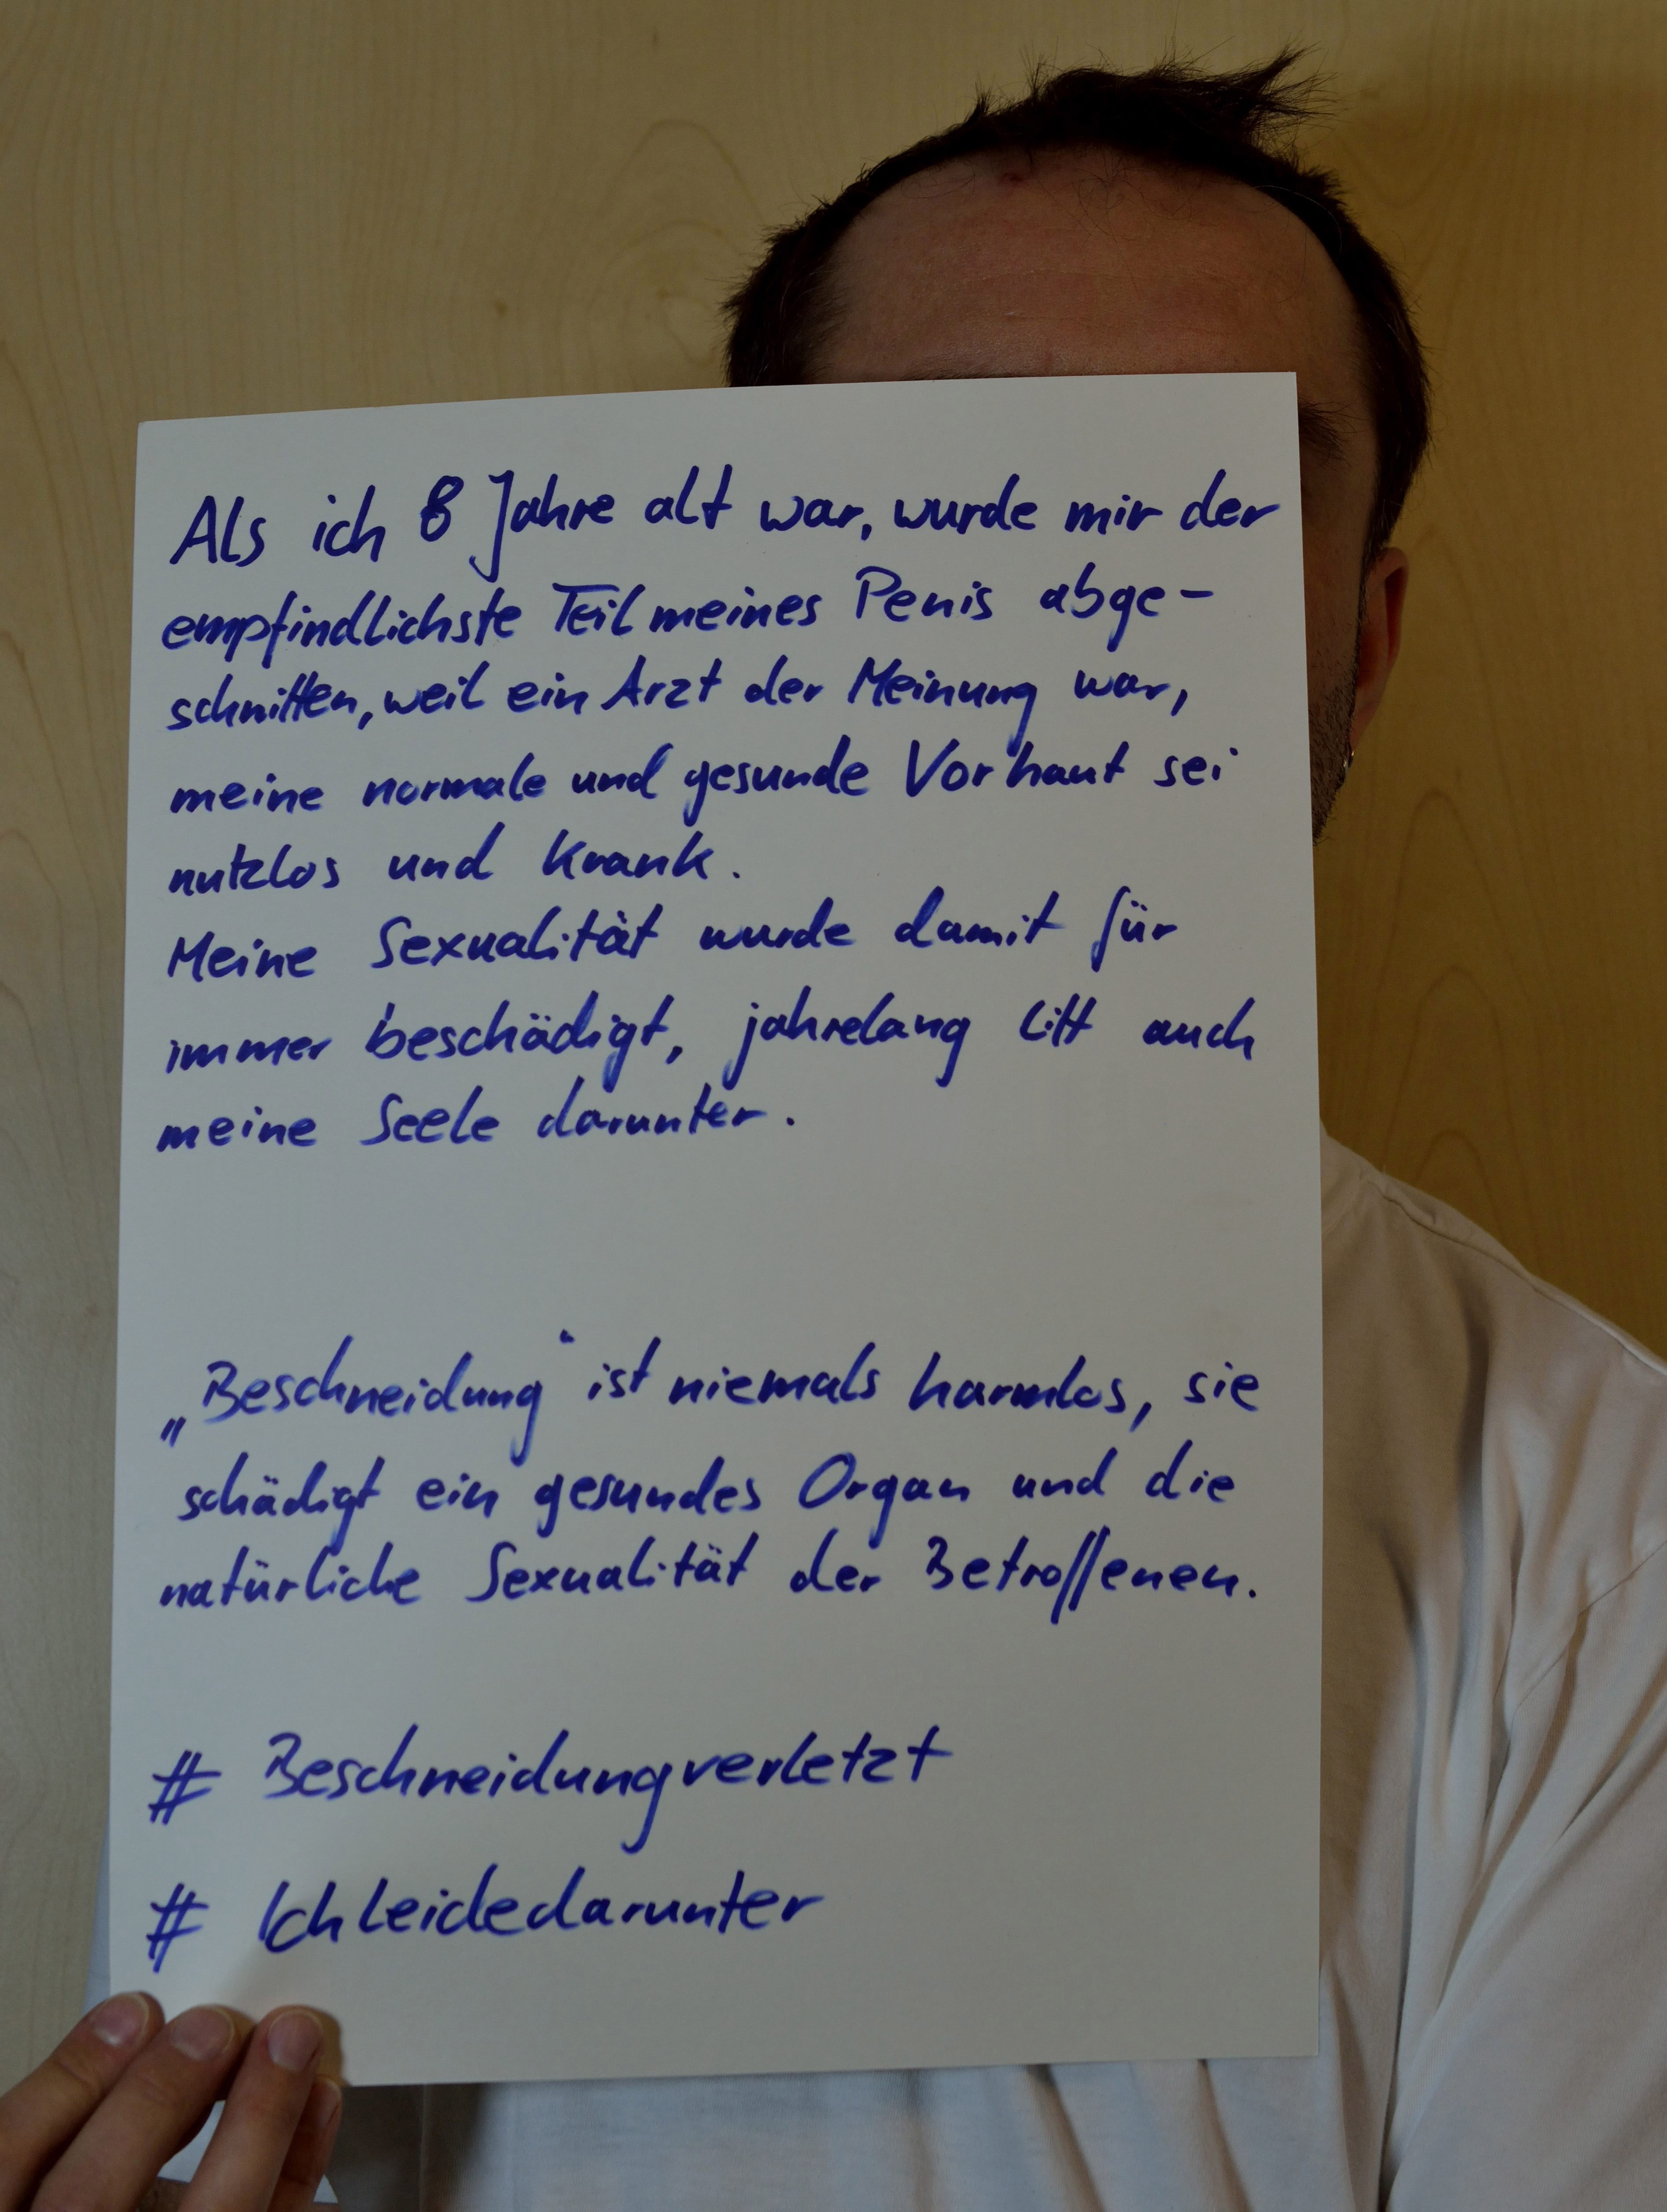 Als ich 8 Jahre alt war, wurde mir der
empfindlichste Teil meines Penis abge-
schnitten, weil ein Arzt der Meinung war,
meine normale und gesunde Vorhaut sei
nutzlos und krank.
Meine Sexualität wurde damit für
immer beschädigt, jahrelang litt auch
meine Seele darunter.
„Beschneidung" ist niemals harmlos, sie
schädigt ein gesundes Organ und die
natürliche Sexualität der Betroffenen.
# Beschneidungverletzt
# Ichleidedarunter